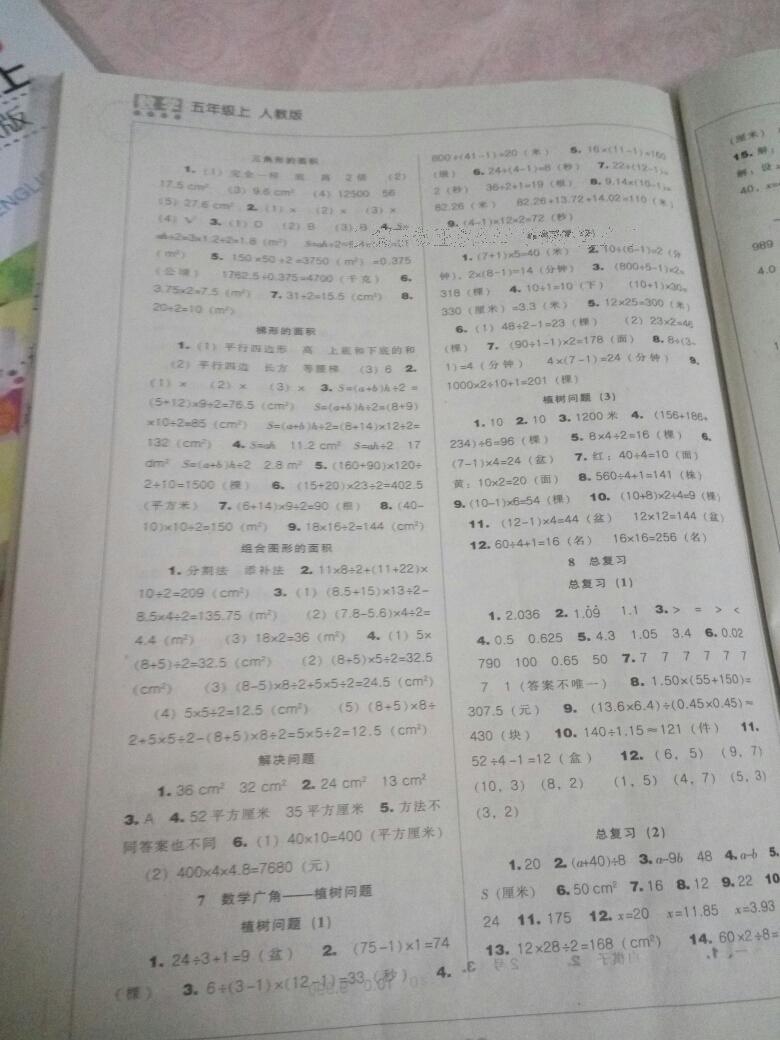 上
版
ENGLISH
数学 五年级上 人教版
三角形的面积
1. (1) 完全一样 底 高 2倍 (2)
17.5 cm² (3) 9.6 cm² (4) 12500 56
(5) 27.6 cm² 2. (1) × (2) × (3) ×
(4) √ 3. (1) D (2) B (3) B 4. S=
ah÷2=3×1.2÷2=1.8 (m²) S=ah÷2=
(m²) 5. 150×50÷2=3750 (m²) =0.375
(公顷) 1762.5÷0.375=4700 (千克) 6.
3.75×2=7.5 (m²) 7. 31÷2=15.5 (cm²) 8.
20÷2=10 (m²)
梯形的面积
1. (1) 平行四边形 高 上底和下底的和
(2) 平行四边 长方 等腰梯 (3) 6 2.
(1) × (2) × (3) × 3. S=(a+b)h÷2=
(5+12)×9÷2=76.5 (cm²) S=(a+b)h÷2=(8+9)
×10÷2=85 (cm²) S=(a+b)h÷2=(8+14)×12÷2=
132 (cm²) 4. S=ah 11.2 cm² S=ah÷2 17
dm² S=(a+b)h÷2 2.8 m² 5. (160+90)×120÷
2÷10=1500 (棵) 6. (15+20)×23÷2=402.5
(平方米) 7. (6+14)×9÷2=90 (根) 8. (40-
10)×10÷2=150 (m²) 9. 18×16÷2=144 (cm²)
组合图形的面积
1. 分割法 添补法 2. 11×8÷2+(11+22)×
10÷2=209 (cm²) 3. (1) (8.5+15)×13÷2-
8.5×4÷2=135.75 (m²) (2) (7.8-5.6)×4÷2=
4.4 (m²) (3) 18×2=36 (m²) 4. (1) 5×
(8+5)÷2=32.5 (cm²) (2) (8+5)×5÷2=32.5
(cm²) (3) (8-5)×8÷2+5×5÷2=24.5 (cm²)
(4) 5×5÷2=12.5 (cm²) (5) (8+5)×8÷
2+5×5÷2-(8+5)×8÷2=5×5÷2=12.5 (cm²)
解决问题
1. 36 cm² 32 cm² 2. 24 cm² 13 cm²
3. A 4. 52平方厘米 35平方厘米 5. 方法不
同答案也不同 6. (1) 40×10=400 (平方厘米)
(2) 400×4×4.8=7680 (元)
7 数学广角——植树问题
植树问题 (1)
1. 24÷3+1=9 (盆) 2. (75-1)×1=74
(棵) 3. 6÷(3-1)×(12-1)=33 (秒) 4.
800÷(41-1)=20 (米) 5. 16×(11-1)=160
(级) 6. 24÷(4-1)=8 (秒) 7. 22÷(12-1)=
2 (秒) 36÷2+1=19 (根) 8. 9.14×(10-1)=
82.26 (米) 82.26+13.72+14.02=110 (米)
9. (4-1)×12×2=72 (秒)
1. (7+1)×5=40 (米) 2. 10÷(6-1)=2 (分
钟), 2×(8-1)=14 (分钟) 3. (800÷5-1)×2=
318 (棵) 4. 10÷1=10 (下) (10+1)×30=
330 (厘米) =3.3 (米) 5. 12×25=300 (米)
6. (1) 48÷2-1=23 (棵) (2) 23×2=46
(棵) 7. (90÷1-1)×2=178 (面) 8. 8÷(3-
1)=4 (分钟) 4×(7-1)=24 (分钟) 9.
1000×2÷10+1=201 (棵)
植树问题 (3)
1. 10 2. 10 3. 1200米 4. (156+186+
234)÷6=96 (棵) 5. 8×4÷2=16 (棵) 6.
(7-1)×4=24 (盆) 7. 红: 40÷4=10 (面)
黄: 10×2=20 (面) 8. 560÷4+1=141 (株)
9. (10-1)×6=54 (棵) 10. (10+8)×2÷4=9 (棵)
11. (12-1)×4=44 (盆) 12×12=144 (盆)
12. 60÷4+1=16 (名) 16×16=256 (名)
8 总复习
总复习 (1)
1. 2.036 2. 1.0̇9̇ 1.1 3. > = > <
4. 0.5 0.625 5. 4.3 1.05 3.4 6. 0.02
790 100 0.65 50 7. 7 7 7 7 7 7
7 1 (答案不唯一) 8. 1.50×(55+150)=
307.5 (元) 9. (13.6×6.4)÷(0.45×0.45)≈
430 (块) 10. 140÷1.15≈121 (件) 11.
52÷4-1=12 (盒) 12. (6, 5) (9, 7)
(10, 3) (8, 2) (1, 5) (4, 7) (5, 3)
(3, 2)
总复习 (2)
1. 20 2. (a+40)÷8 3. a-9b 48 4. a-b 5.
S (厘米) 6. 50 cm² 7. 16 8. 12 9. 22 10
24 11. 175 12. x=20 x=11.85 x=3.93
13. 12×28÷2=168 (cm²) 14. 60×2÷8=
(厘米)
15. 解:
解: 设
40, x=
989
4.0